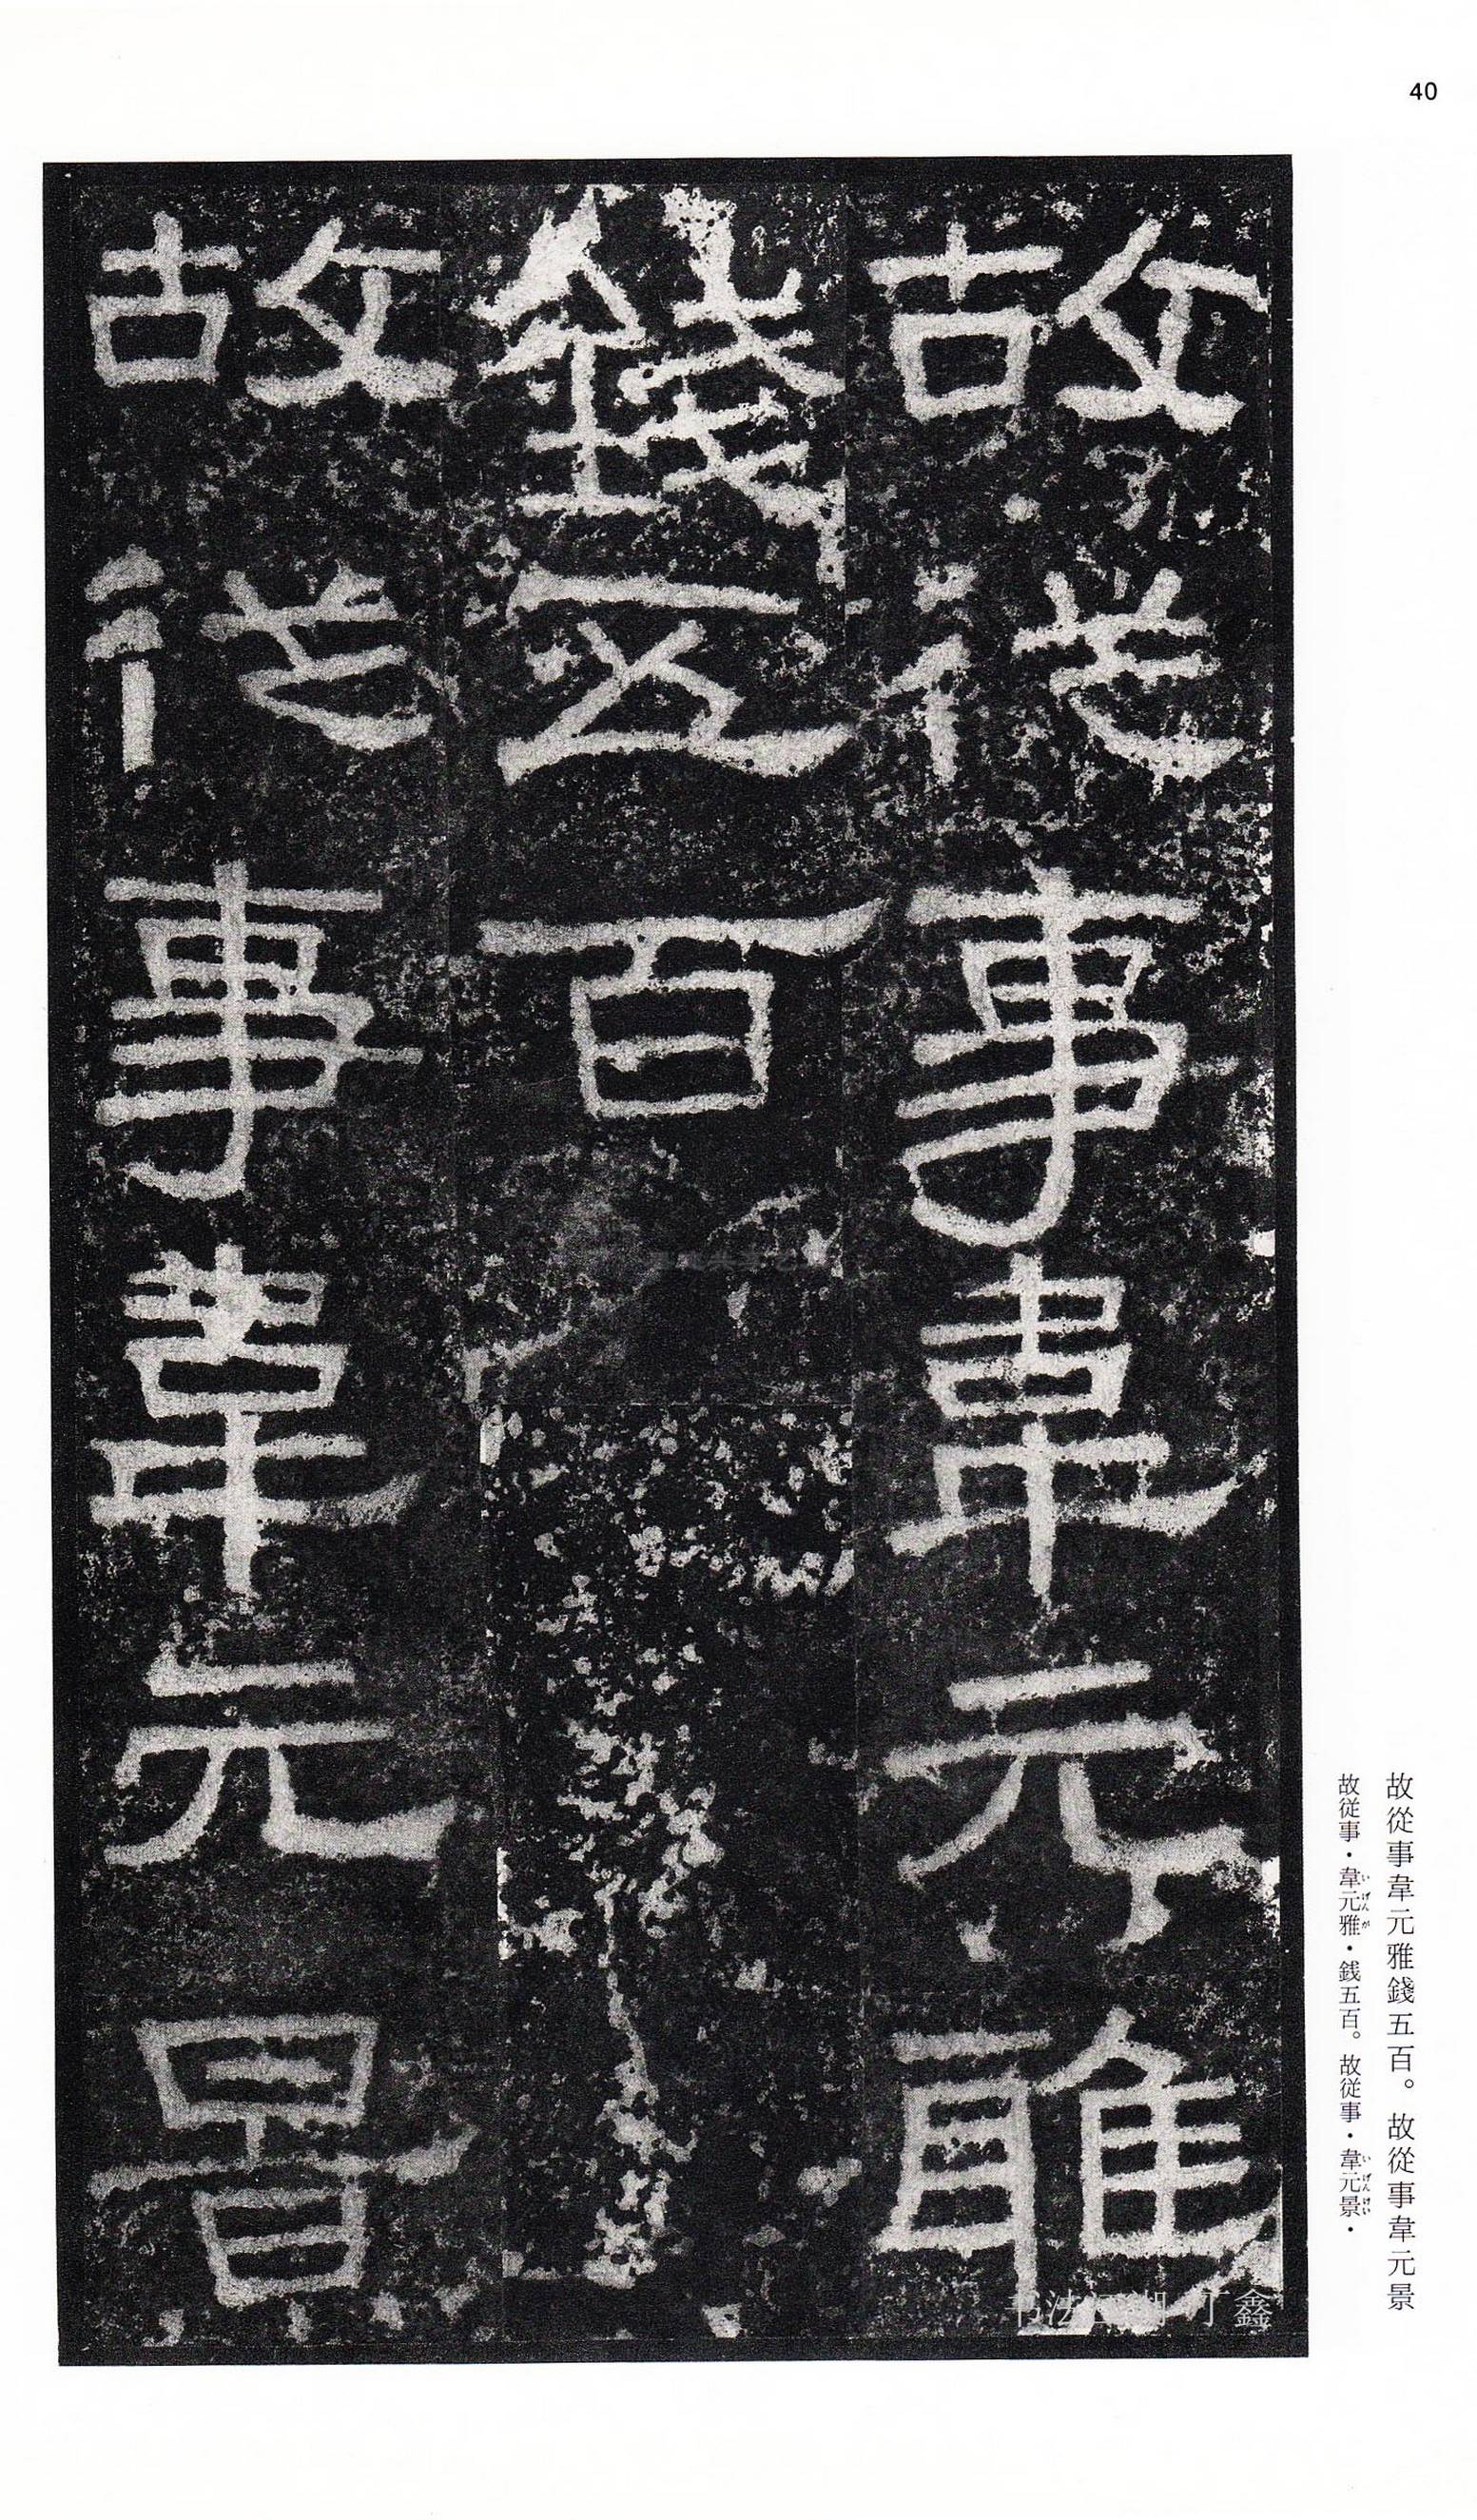 40
故從事韋元雅
錢五百
故從事韋元景
故從事韋元雅錢五百。故從事韋元景
故従事・韋元雅・銭五百。故従事・韋元景・
いげんが
いげんけい